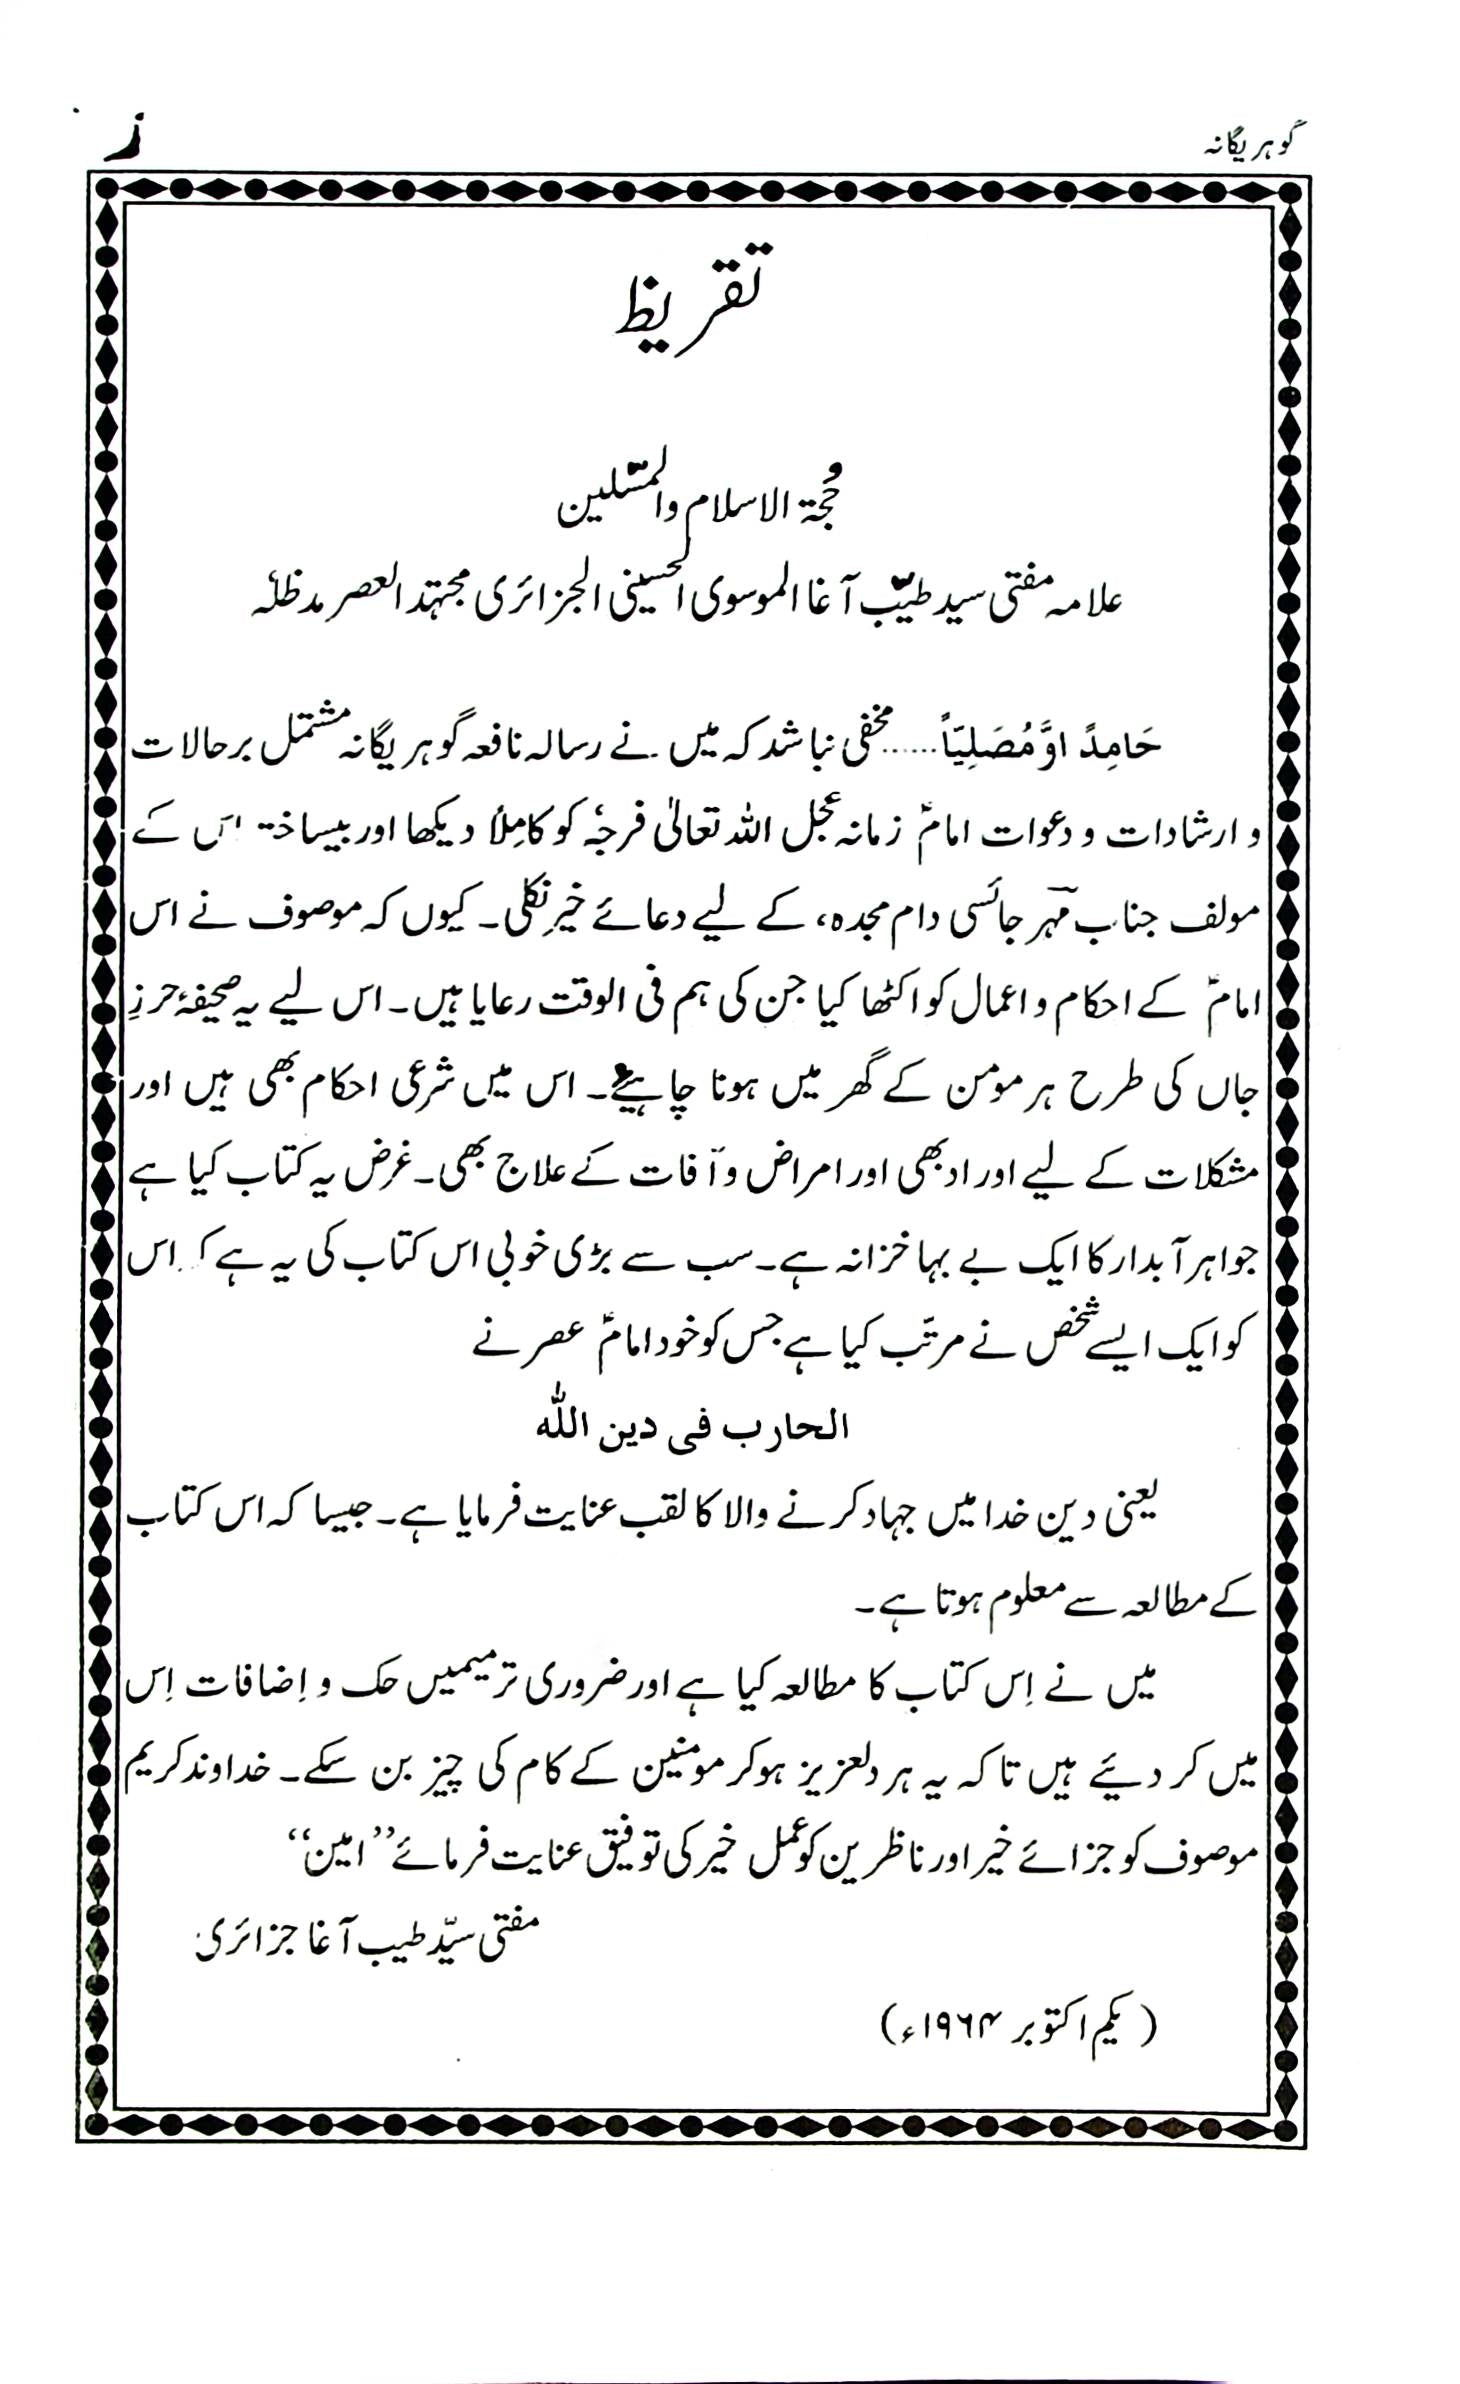 گوہر یگانہ
ز
تقریظ
حُجۃ الاسلام والمسّلین
علامہ مفتی سید طیّب آغا الموسوی الحسینی الجزائری مجتہد العصر مدظلہٗ
حَامِدً اوَّ مُصَلِیّاً ...... مخفی نباشد کہ میں نے رسالہ نافعہ گوہر یگانہ مشتمل بر حالات
و ارشادات و دعوات امامؑ زمانہ عجل اللہ تعالیٰ فرجہٗ کو کامِلاً دیکھا اور بیساختہ اس کے
مولف جناب مہرؔ جائسی دام مجدہ، کے لیے دعائے خیرِ نکلی۔ کیوں کہ موصوف نے اس
امامؑ کے احکام و اعمال کو اکٹھا کیا جن کی ہم فی الوقت رعایا ہیں۔ اس لیے یہ صحیفۂ حرزِ
جاں کی طرح ہر مومن کے گھر میں ہونا چاہیئے۔ اس میں شرعی احکام بھی ہیں اور
مشکلات کے لیے اوراد بھی اور امراض و آفات کے علاج بھی۔ غرض یہ کتاب کیا ہے
جواہر آبدار کا ایک بے بہا خزانہ ہے۔ سب سے بڑی خوبی اس کتاب کی یہ ہے کہ اس
کو ایک ایسے شخص نے مرتّب کیا ہے جس کو خود امامؑ عصر نے
الحارب فی دین اللہ
یعنی دین خدا میں جہاد کرنے والا کا لقب عنایت فرمایا ہے۔ جیسا کہ اس کتاب
کے مطالعہ سے معلوم ہوتا ہے۔
میں نے اِس کتاب کا مطالعہ کیا ہے اور ضروری ترمیمیں حک و اِضافات اِس
میں کر دیئے ہیں تاکہ یہ ہر دلعزیز ہوکر مومنین کے کام کی چیز بن سکے۔ خداوند کریم
موصوف کو جزائے خیر اور ناظرین کو عمل خیر کی توفیق عنایت فرمائے ”امین“
مفتی سیّد طیب آغا جزائری
(یکم اکتوبر ۱۹۶۴ء)